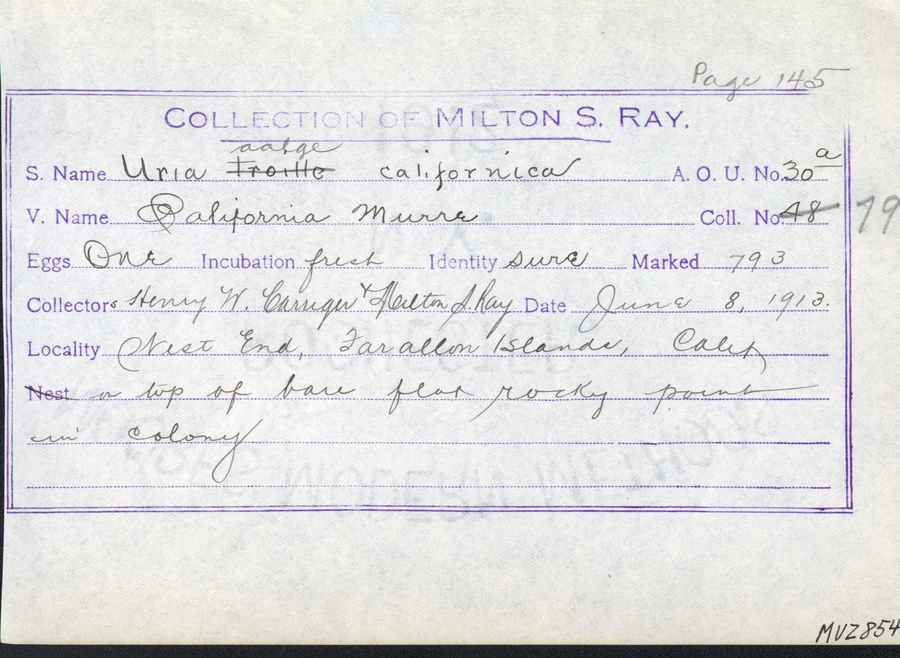 Page 145
COLLECTION OF MILTON S. RAY.
aalge
S. Name Uria Troille californica A. O. U. No. 30 a
V. Name California Murre Coll. No. 48 79
Eggs One Incubation fresh Identity sure Marked 793
Collectors Henry W. Carriger & Milton S. Ray Date June 8, 1913.
Locality West End, Farallon Islands, Calif
Nest on top of bare flat rocky point
in colony
MVZ854